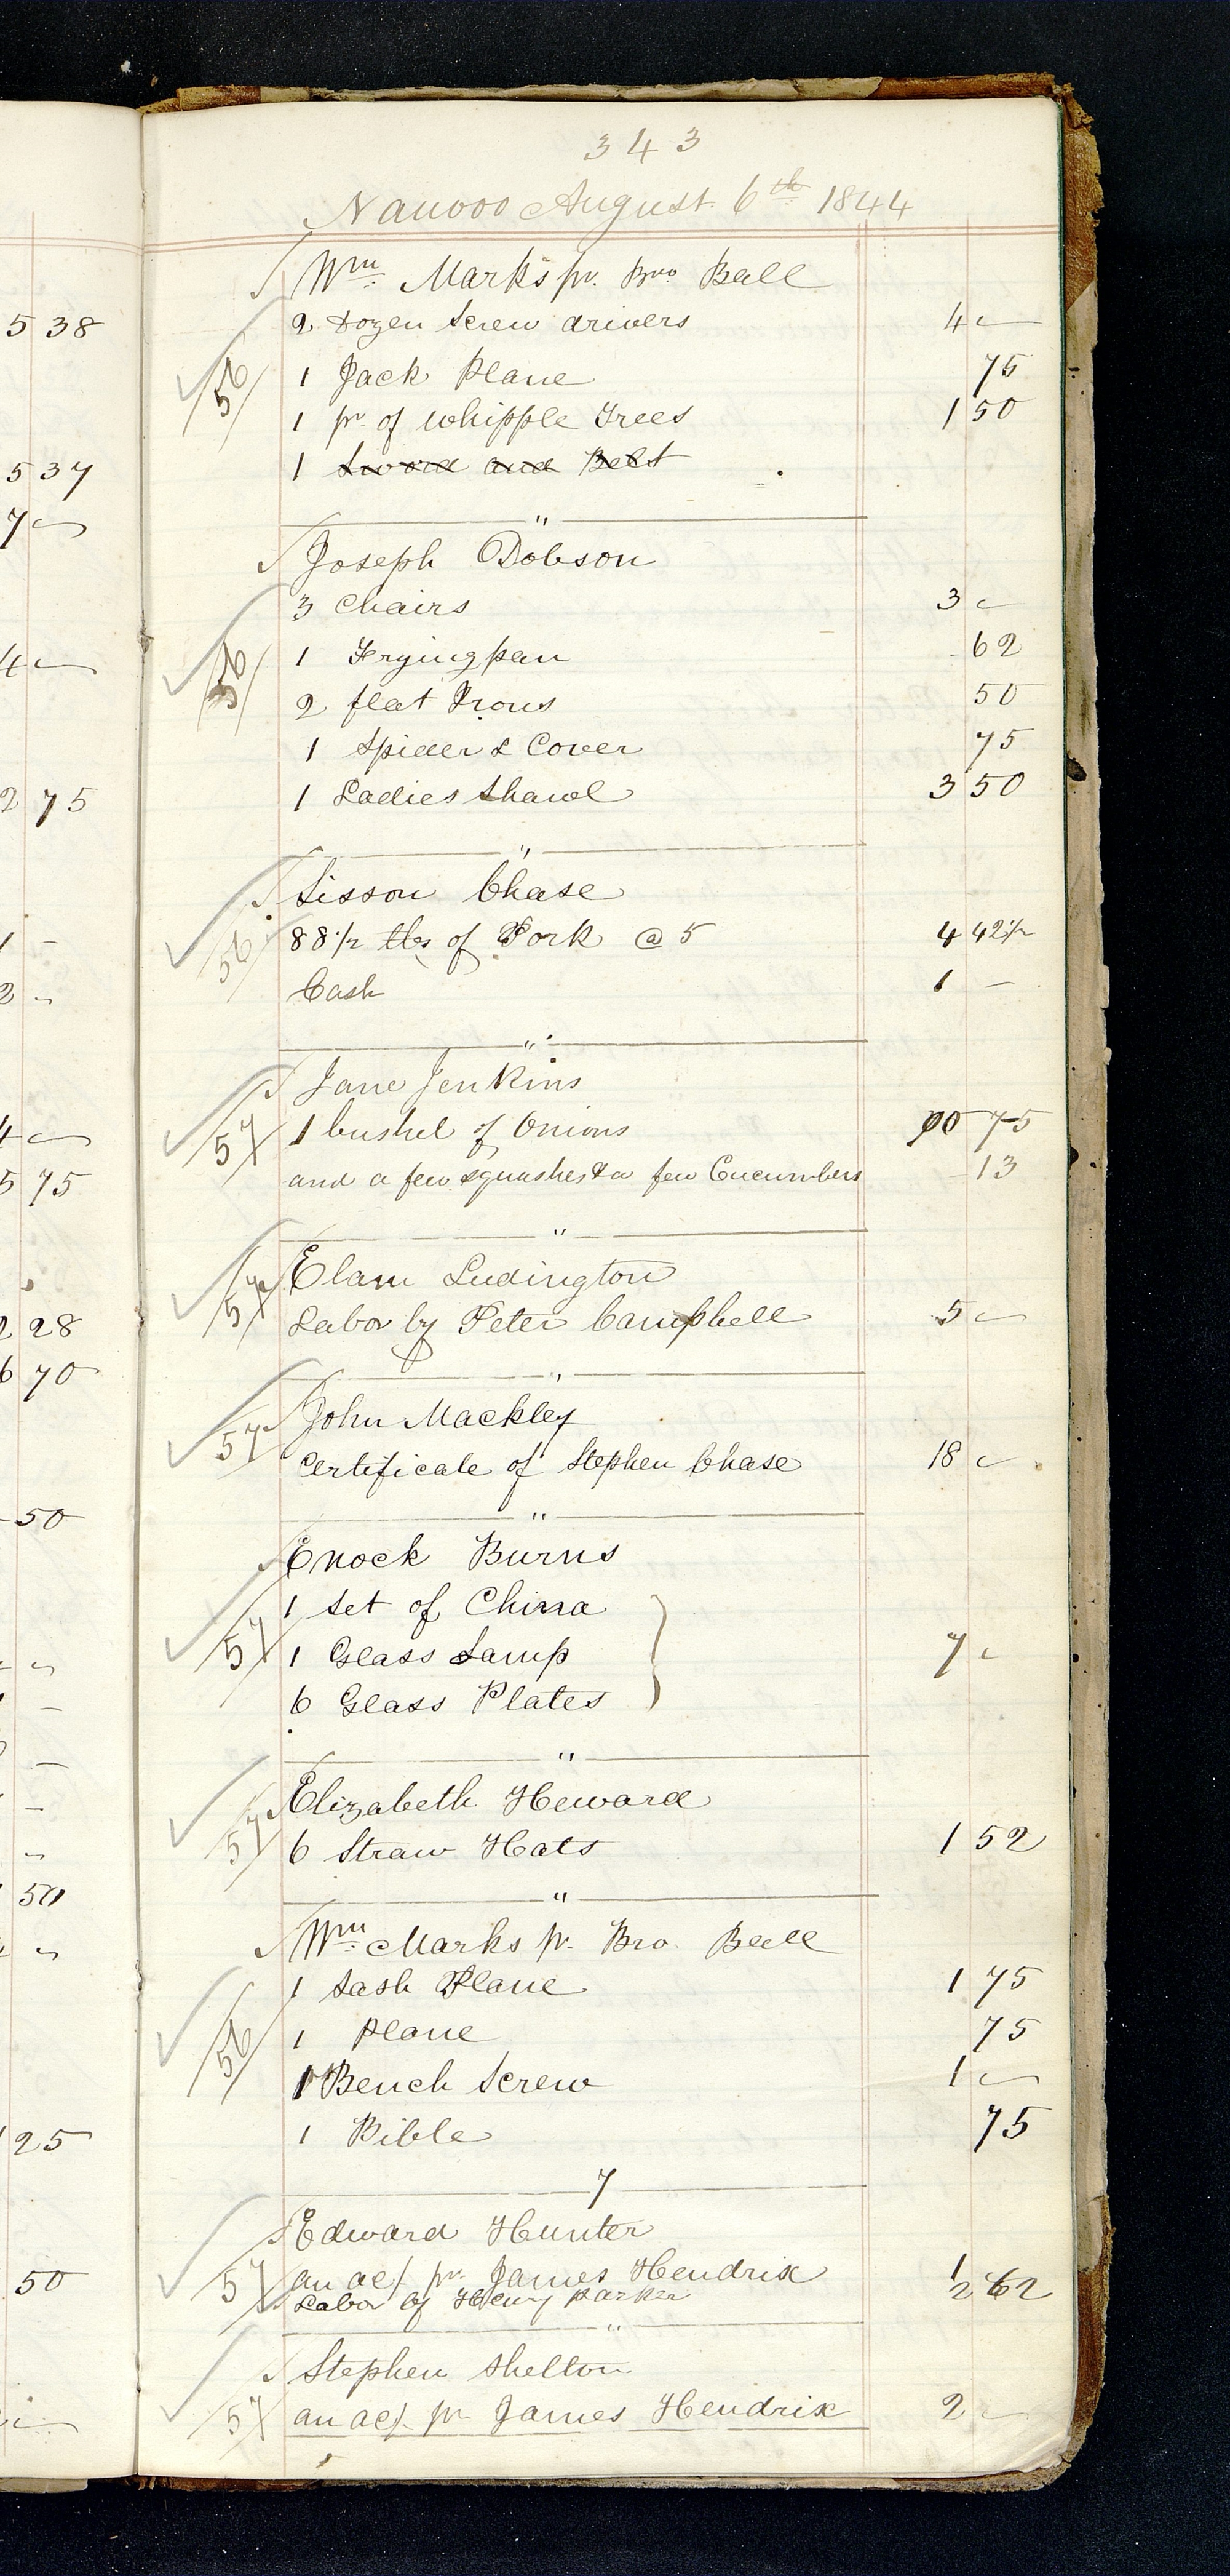 343
Nauvoo August 6th 1844
Wm Marks pr. Bro Ball
2 Dozen Screw drivers 4 —
56 1 Jack Plane 75
1 pr of Whipple Trees 1 50
1 Sword and Belt
"
Joseph Dobson
3 Chairs 3 —
56 1 Frying pan 62
2 flat Irons 50
1 Spider & Cover 75
1 Ladies Shawl 3 50
"
Sisson Chase
56 88 1/2 lbs of Pork @ 5 4 42 1/2
Cash 1 —
"
Jane Jenkins
57 1 bushel of Onions 00 75
and a few squashes & a few Cucumbers 13
"
57 Elam Ludington
Labor by Peter Campbell 5 —
"
57 John Mackley
Certificate of Stephen Chase 18 —
"
Enock Burns
1 Set of China
57 1 Glass Lamp 7 —
6 Glass Plates
"
Elizabeth Heward
57 6 Straw Hats 1 52
"
Wm Marks pr. Bro. Ball
1 Sash Plane 1 75
56 1 Plane 75
1 Bench Screw 1 —
1 Bible 75
7
Edward Hunter
57 an ac/ pr James Hendrix
Labor of Henry Parker 62
"
Stephen Shelton
57 an ac/. pr James Hendrix 2 —
5 38
5 37
7 —
4 —
2 75
1 -
2 "
4 —
5 75
2 28
6 70
50
50
25
50